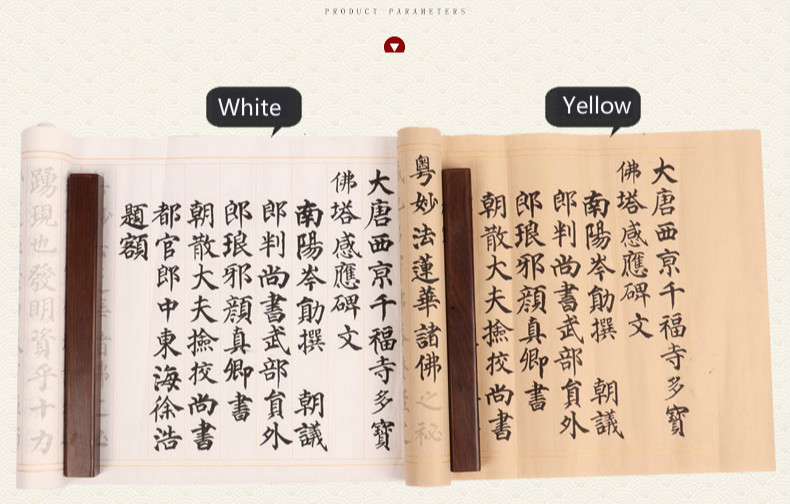 PRODUCT PARAMETERS
White
Yellow
大唐西亰千福寺多寶
佛塔感應碑文
南陽岑勛撰　朝議
郎判尚書武部貟外
郎琅邪顏真卿書
朝散大夫撿挍尚書
都官郎中東海徐浩
題額
踴現也發明資乎十力
大唐西亰千福寺多寶
佛塔感應碑文
南陽岑勛撰　朝議
郎判尚書武部貟外
郎琅邪顏真卿書
朝散大夫撿挍尚書
粵妙法蓮華諸佛之秘